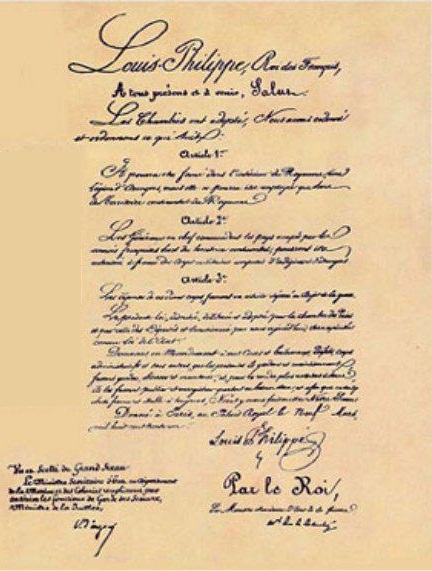 Louis Philippe, Roi des Français,
A tous présens et à venir, Salut.
Les Chambres ont adopté, Nous avons ordonné
et ordonnons ce qui suit:
Article 1er
Il pourra être formé dans l'intérieur du Royaume, une
Légion d'Etrangers, mais elle ne pourra être employée que hors
du territoire continental du Royaume
Article 2e
Les Généraux en chef commandant les pays occupés par les
armées françaises hors du territoire continental, pourront être
autorisés à former des corps militaires composés d'indigènes et d'étrangers
Article 3e
Les dépenses de ces divers corps feront un article séparé au Budjet de la guerre.
La présente loi, discutée, délibérée et adoptée par la chambre des Pairs
et par celle des Députés et sanctionnée par nous aujourd'hui, sera exécutée
comme loi de l'Etat.
Donnons en Mandement à nos Cours et tribunaux, Préfets, Corps
administratifs et tous autres, que les présentes ils gardent et maintiennent
fassent garder, observer et maintenir, et, pour les rendre plus notoires à tous
ils les fassent publier et enregistrer partout où besoin sera; et afin que ce soit
chose ferme et stable à toujours, Nous y avons fait mettre Notre Sceau
Donné à Paris, au Palais Royal le Neuf Mars,
mil huit cent trente un
Louis Philippe
Vu et Scellé du Grand Sceau
Le Ministre Secrétaire d'Etat au département
de la Marine et des Colonies
Garde des Sceaux,
Ministre de la Justice,
Par le Roi,
Le Ministre Secrétaire d'Etat de la guerre